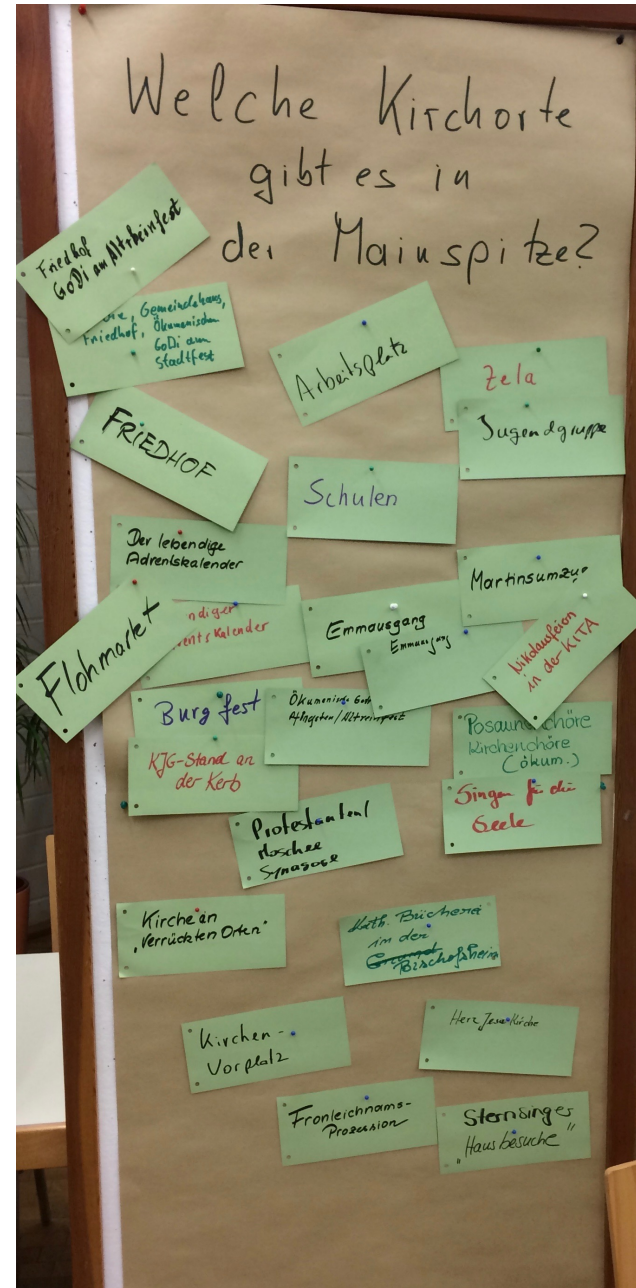 Welche Kirchorte
gibt es in
der Mainspitze?
Friedhof
GoDi am Altrheinfest
Gemeindehaus,
Friedhof, Ökumenischen
GoDi am
Stadtfest
Arbeitsplatz
Zela
Jugendgruppe
FRIEDHOF
Schulen
Der lebendige
Adventskalender
Martinsumzug
Flohmarkt
ndiger
ventskalender
Emmausgang
Emmausgang
Nikolausfeiern
in der KITA
Burgfest
Ökumenische
Pfingsten/Altrheinfest
Posaunenchöre
Kirchenchöre
(ökum.)
KJG-Stand an
der Kerb
Singen für die
Seele
Protestanten/
Moschee
Synagoge
Kirche an
"Verrückten Orten"
Kath. Bücherei
in der
Bischofsheim
Kirchen-
Vorplatz
Herz Jesu Kirche
Fronleichnams-
Prozession
Sternsinger
"Hausbesuche"